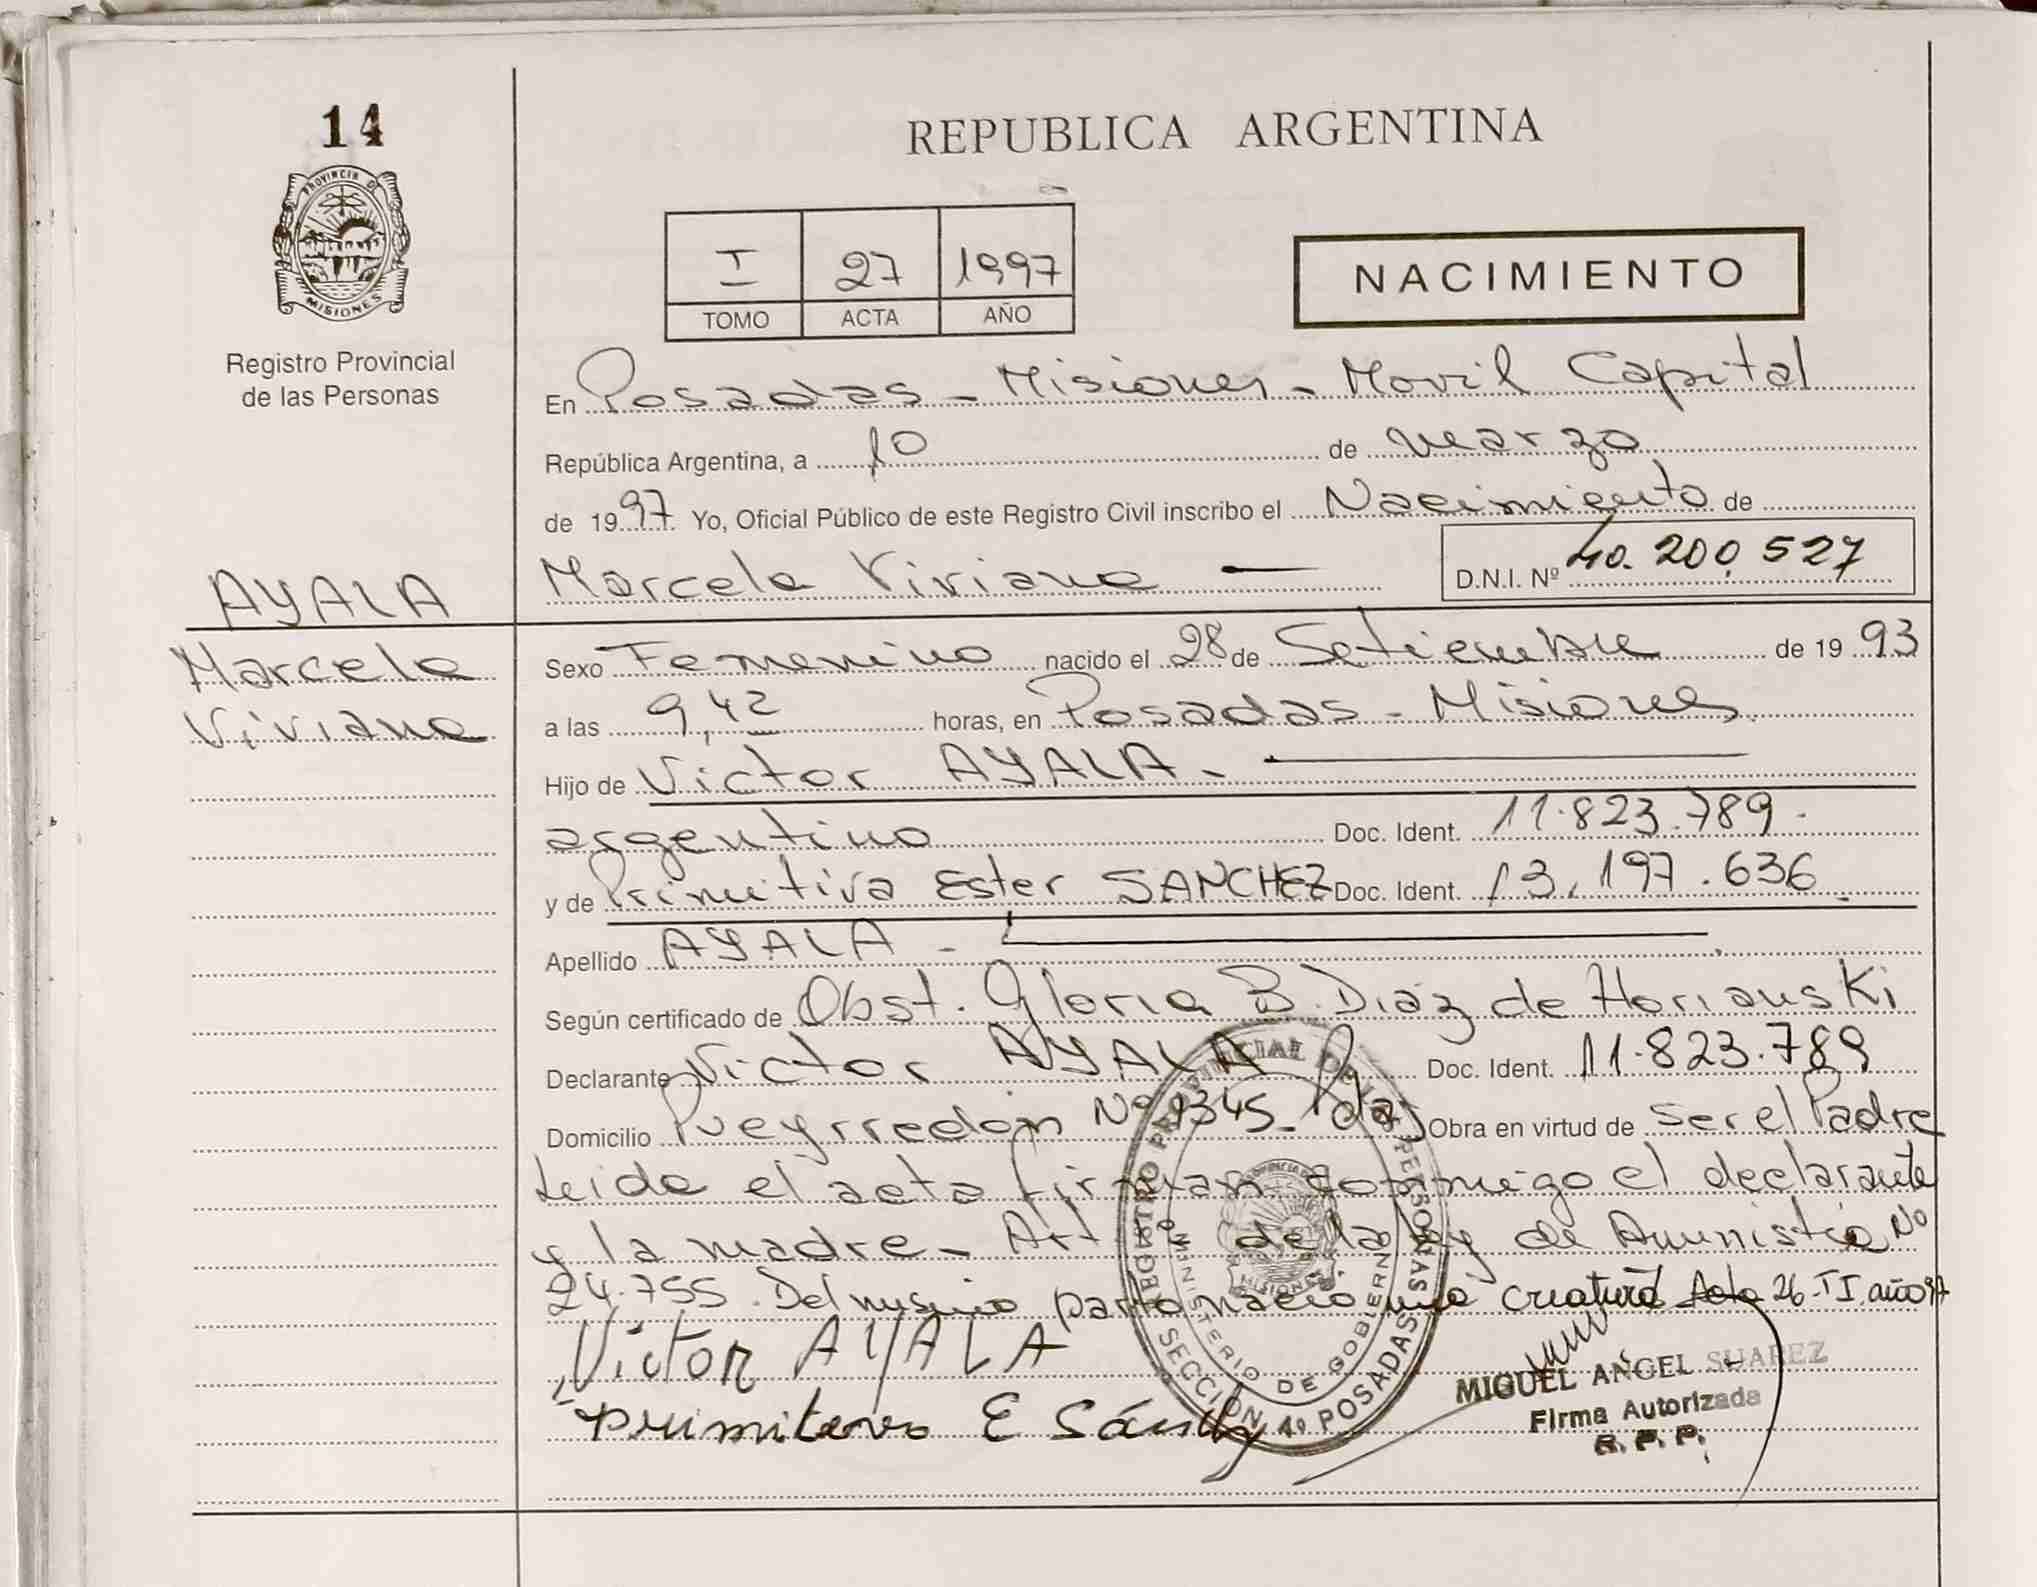 14
PROVINCIA DE
MISIONES
Registro Provincial
de las Personas
REPUBLICA ARGENTINA
I 27 1997
TOMO ACTA AÑO
NACIMIENTO
En Posadas - Misiones - Movil Capital
República Argentina, a 10 de marzo
de 1997 Yo, Oficial Público de este Registro Civil inscribo el Nacimiento de
Marcela Viviana — D.N.I. Nº 40.200.527
AYALA
Marcela
Viviana
Sexo Femenino nacido el 28 de Setiembre de 1993
a las 9,42 horas, en Posadas - Misiones.
Hijo de Victor AYALA -
argentino Doc. Ident. 11.823.789.
y de Primitiva Ester SANCHEZ Doc. Ident. 13.197.636
Apellido AYALA -
Según certificado de Obst. Gloria B. Diaz de Horianski
Declarante Victor AYALA Doc. Ident. 11.823.789
Domicilio Pueyrredón Nº 1345 - Pdas Obra en virtud de ser el Padre
Leida el acta firman conmigo el declarante
y la madre - Art de la ley de Amnistia Nº
24.755. Del mismo parto nacio una criatura Acta 26 - TI. año 97
Victor AYALA
E Sánchez
REGISTRO PROVINCIAL DE LAS PERSONAS
MINISTERIO DE GOBIERNO
SECCION 4º POSADAS
MISIONES
MIGUEL ANGEL SUAREZ
Firma Autorizada
R. P. P.